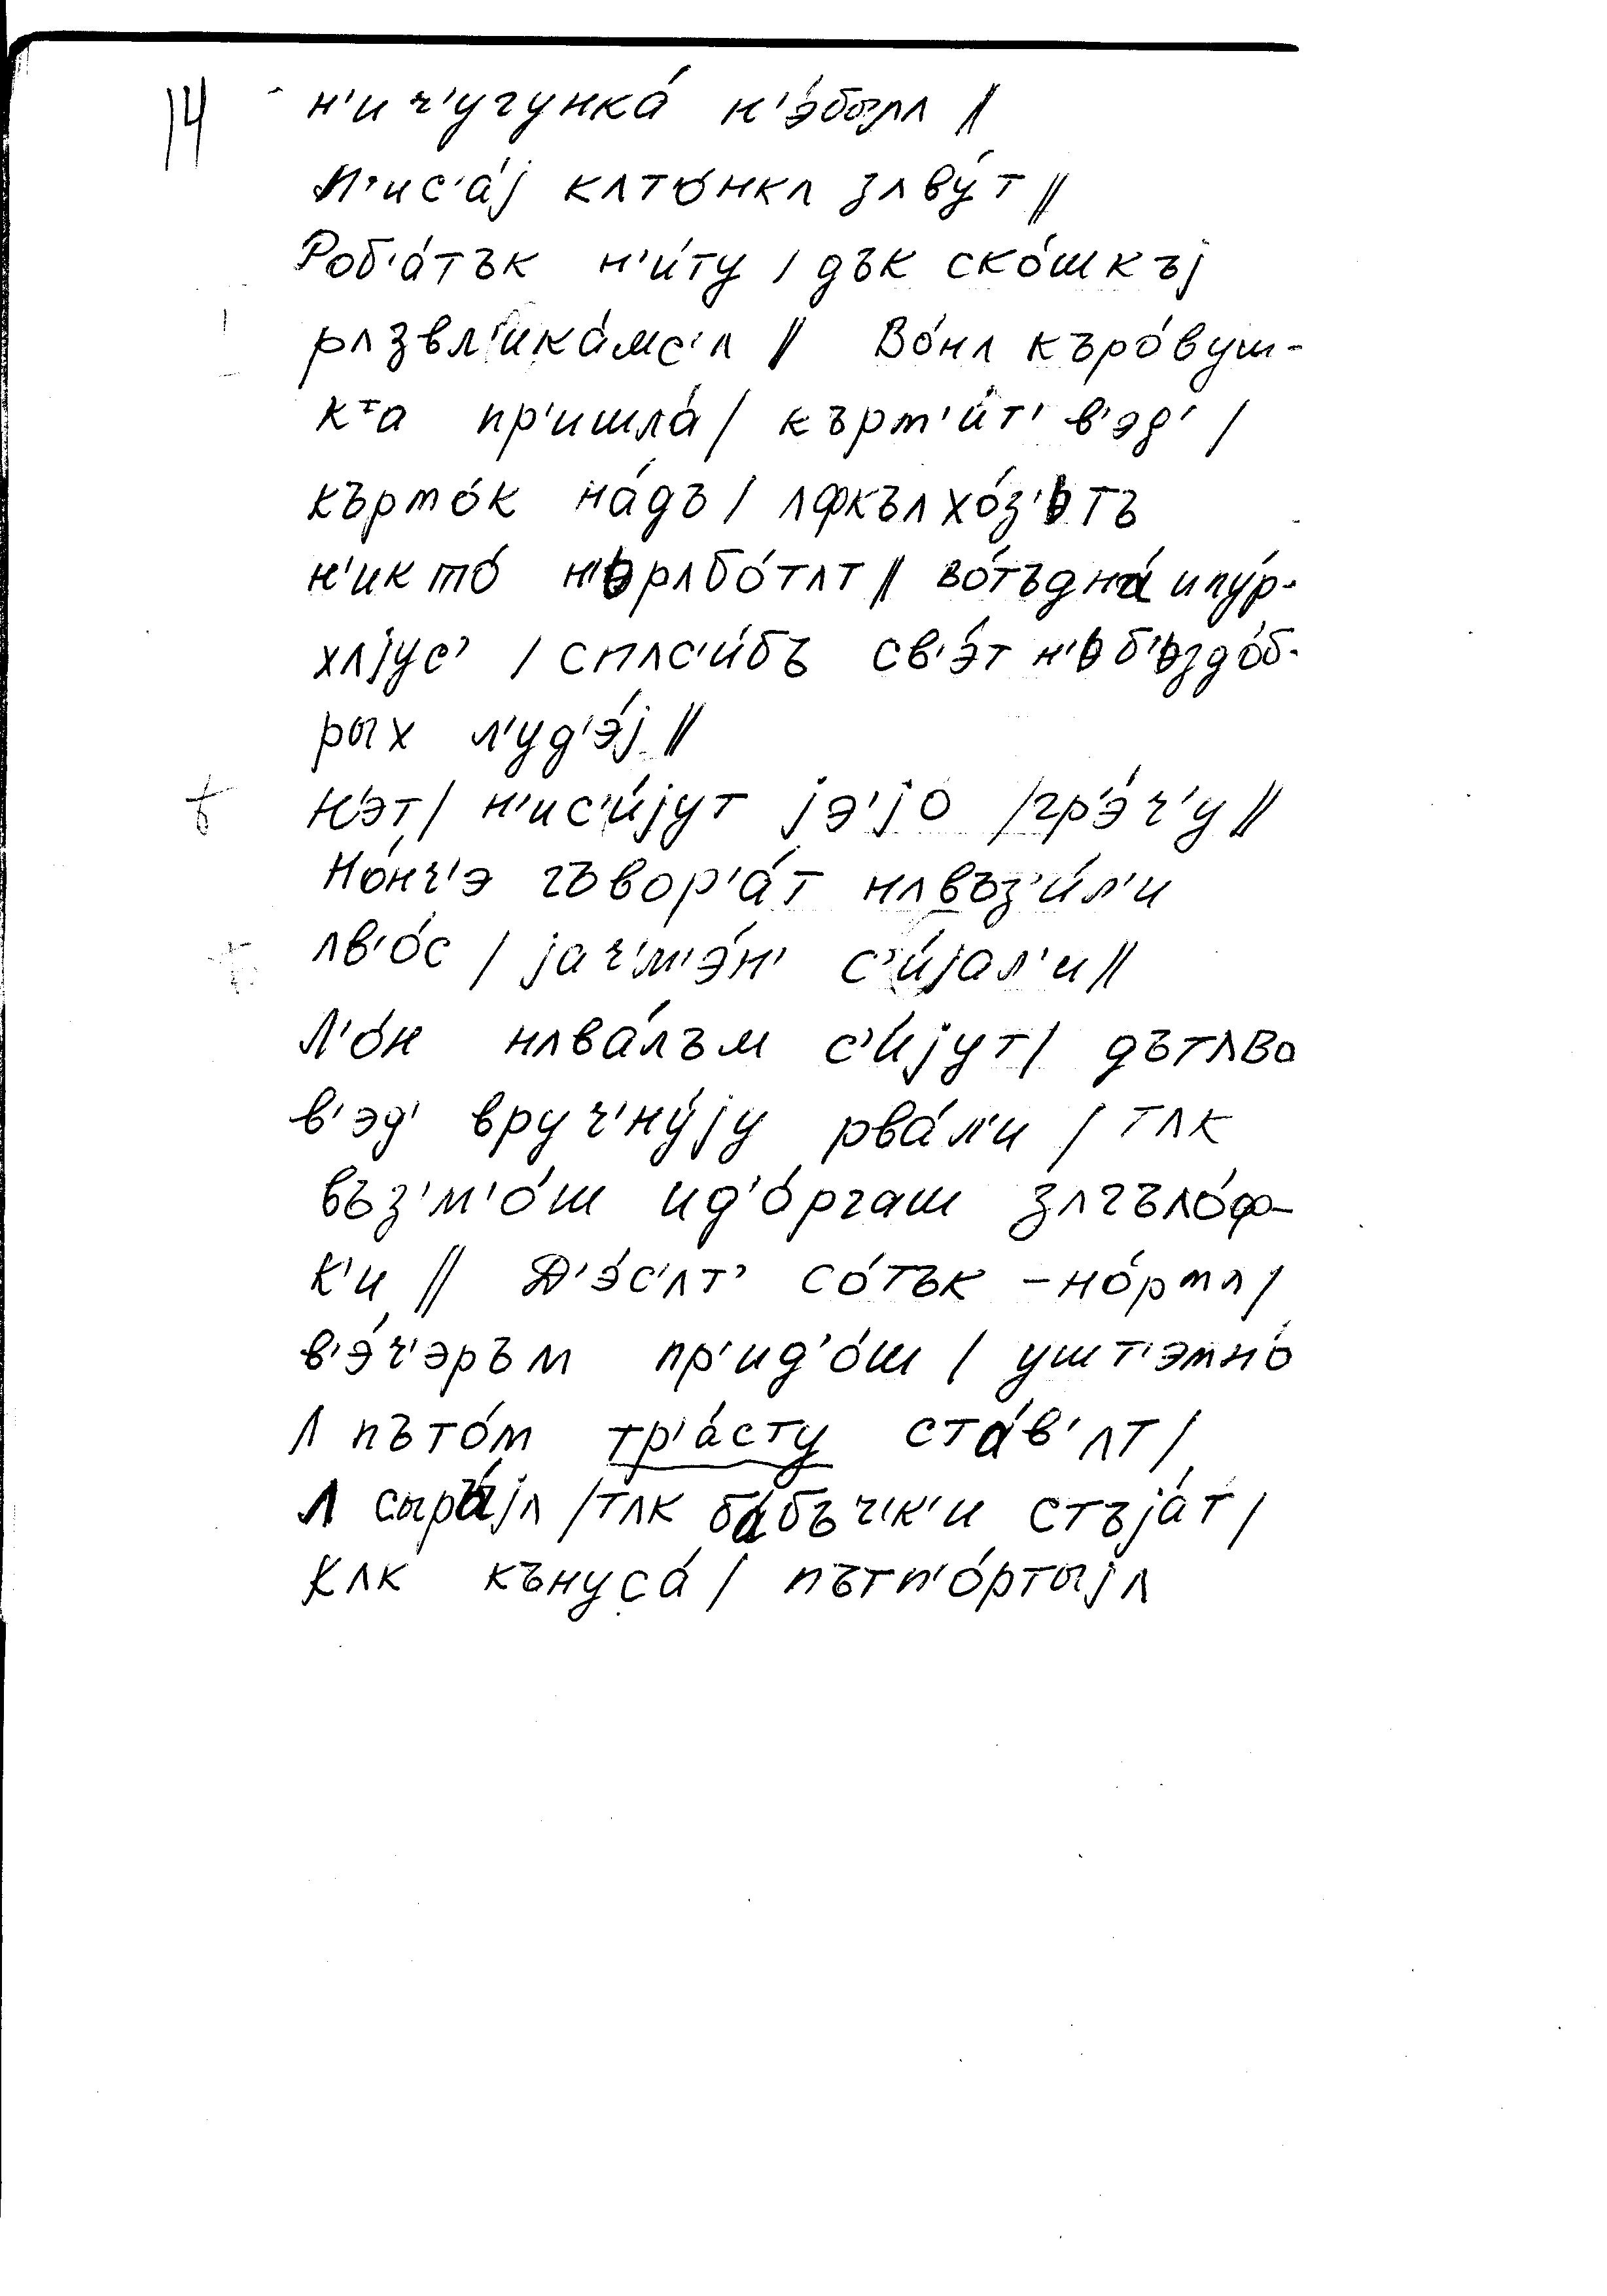 14
н'и ч'угунка́ н'э́былʌ //
П'ис'а́j кʌто́нкʌ зʌву́т //
Роб'а́тък н'и́ту / дък ско́шкъj
рʌзвл'ика́мс'ʌ // Во́нʌ къро́вуш-
кта пр'ишла́ / кърм'и́т' в'эд' /
кърмо́к на́дъ / ʌфкълхо́з'ьтъ
н'икто́ н'ьрʌбо́тʌт // во́тъдна́ ипу́р-
хʌjус' / спʌс'и́бъ св'э́т н'ьб'ьздо́б-
рых л'уд'э́j //
Н'эт / н'ис'и́jут jэ'jо / гр'э́ч'у //
Но́нч'э гъвор'а́т нʌвъз'и́л'и
ʌв'о́с / jач'м'э́н' с'и́jал'и //
Л'о́н нʌва́лъм с'и́jут / дътʌво
в'эд' вруч'ну́jу рва́л'и / тʌк
въз'м'о́ш ид'о́ргаш зʌгъло́ф-
к'и // Д'э́с'ʌт' со́тък – но́рмʌ /
в'э́ч'эръм пр'ид'о́ш / ушт'эмно́
ʌ пъто́м тр'а́сту ста́в'ʌт /
ʌ сыра́jʌ / тʌк ба́бъч'к'и стъjа́т /
кʌк къnуса́ / пътп'о́ртыjʌ